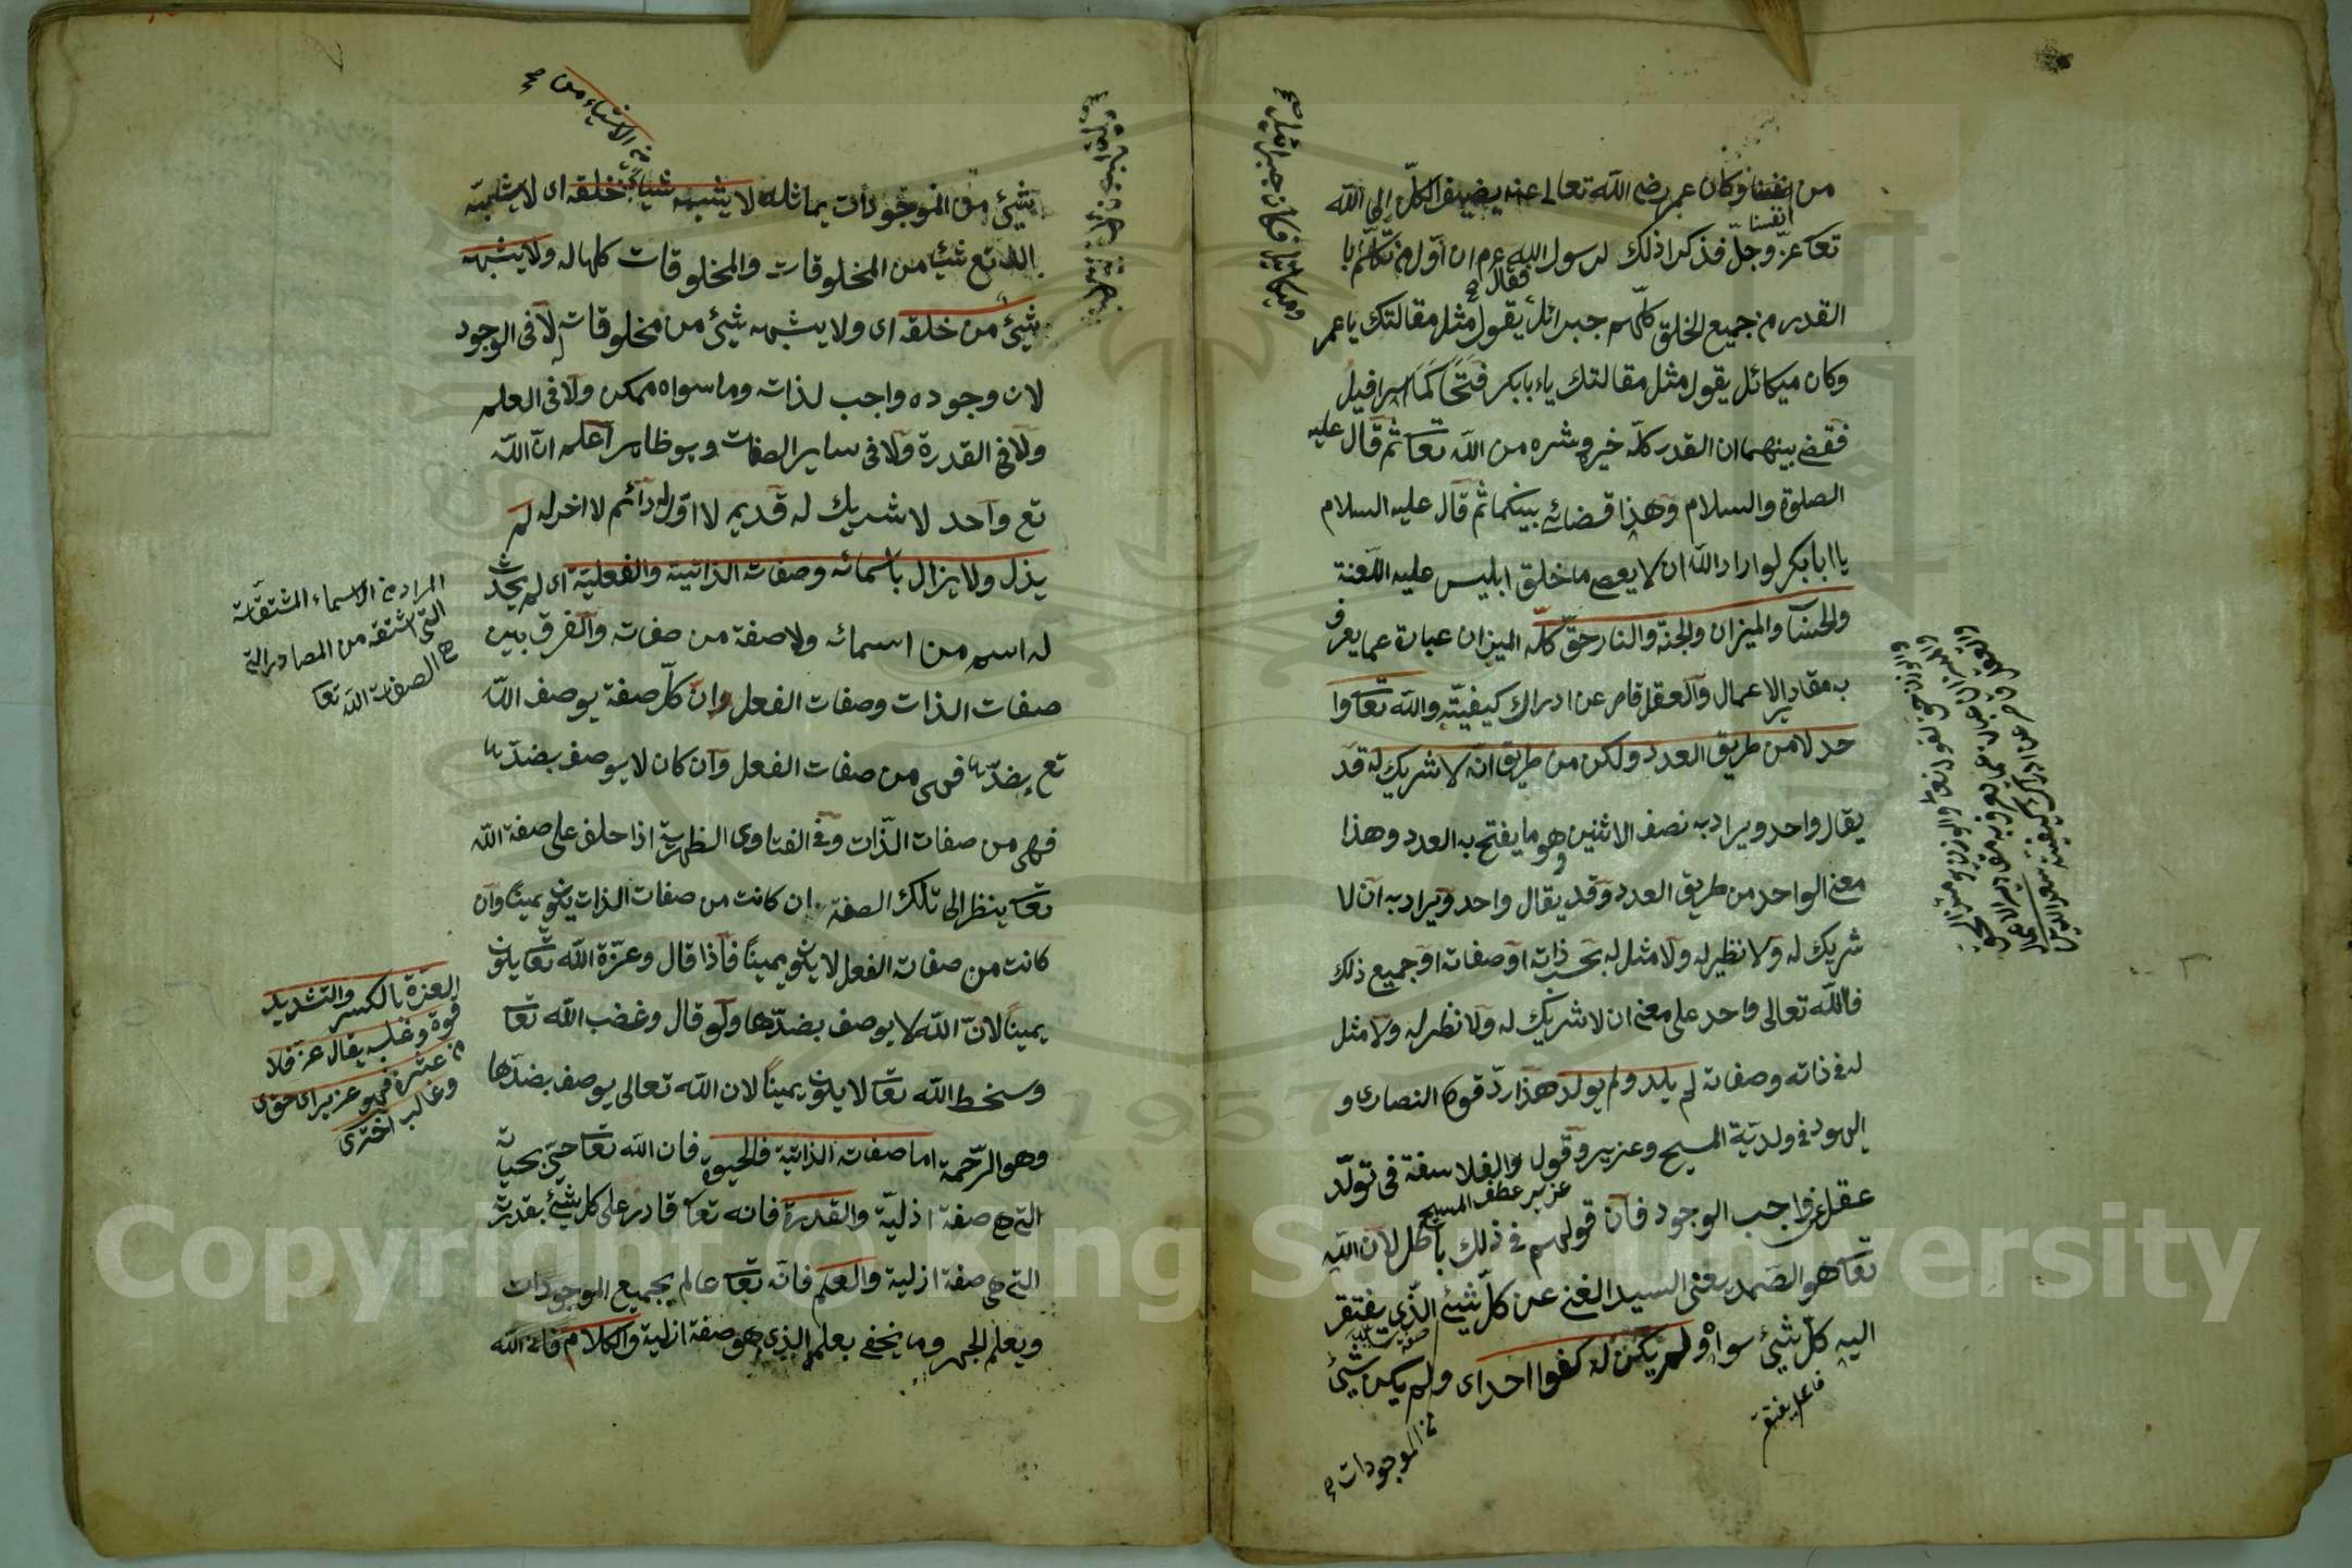 من انفسنا وكان عمر رضي الله تعالى عنه يضيف الكل الى الله
انفسنا
تعا عز وجل فذكر اذلك لرسول الله عم ان اول من تكلم با
فقال
القدر من جميع الخلق كلهم جبرائل يقول مثل مقالتك يا عمر
وكان ميكائل يقول مثل مقالتك ياءبابكر فتحاكما اسرافيل
فقضى بينهما ان القدر كله خيره وشره من الله تعا ثم قال عليه
الصلوة والسلام وهذا قضائي بينكما ثم قال عليه السلام
يا ابا بكر لو اراد الله ان لا يعصى ما خلق ابليس عليه اللعنة
والحساب والميزان والجنة والنار حق كله الميزان عبارة عما يعرف
به مقادير الاعمال والعقل قاصر عن ادراك كيفيته والله تعا وا
حد لا من طريق العدد ولكن من طريق انه لا شريك له قد
يقال واحد ويراد به نصف الاثنين وهو ما يفتح به العدد وهذا
معنى الواحد من طريق العدد وقد يقال واحد ويراد به ان لا
شريك له ولا نظير له ولا مثل له بحسب ذاته او صفاته او جميع ذلك
فالله تعالى واحد على معنى ان لا شريك له ولا نظير له ولا مثل
له في ذاته وصفاته لم يلد ولم يولد هذا رد قول النصارى و
اليهود في ولدية المسيح وعزير وقول والفلاسفة في تولد
عزير عطف المسيح
عقل عن واجب الوجود فان قولهم في ذلك باطل لان الله
تعا هو الصمد يعنى السيد الغنى عن كل شيئ الذي يفتقر
اليه كل شيئ سواه ولم يكن له كفوا احد اى ولم يكن شيئ
فاعل يفتقر
من الموجودات
وميكائيل فكان جبرائيل
شيئ من الموجودات يماثله لا يشبه شيا من خلقه اى لا يشبه
من الاشياء من
الله تع شيا من المخلوقات والمخلوقات كلها له ولا يشبهه
شيئ من خلقه اى ولا يشبهه شيئ من مخلوقاته لا في الوجود
لان وجوده واجب لذاته وما سواه ممكن ولا في العلم
ولا في القدرة ولا في ساير الصفات وهو ظاهر اعلم ان الله
تع واحد لا شريك له قديم لا اول له دائم لا اخر له لم
يذل ولا يزال باسمائه وصفاته الذاتية والفعلية اى لم يحدث
له اسم من اسمائه ولا صفة من صفاته والفرق بين
صفات الذات وصفات الفعل وان كل صفة يوصف الله
تع بضدها فهي من صفات الفعل وان كان لا يوصف بضدها
فهي من صفات الذات وفي الفتاوى الظهرية اذا حلف على صفة الله
تعا ينظر الى تلك الصفة ان كانت من صفات الذات يكون يمينا وان
كانت من صفات الفعل لا يكون يمينا فاذا قال وعزة الله تعا يكون
يمينا لان الله لا يوصف بضدها ولو قال وغضب الله تعا
وسخط الله تعا لا يكون يمينا لان الله تعالى يوصف بضدها
وهو الرحمة اما صفاته الذاتية فالحيوة فان الله تعا حي بحياته
التي هي صفة اذلية والقدرة فانه تعا قادر على كل شيئ بقدرته
التي هي صفة ازلية والعلم فانه تعا عالم بجميع الموجودات
ويعلم الجهر وما يخفى بعلم الذي هو صفة ازلية والكلام فانه الله
المراد من الاسماء المشتقات
التي اشتقه من المصادر التي
هي الصفات الله تعا
العزة بالكسر والتشديد
قوة وغلبه يقال عز فلان
فهو عزيز اى قوى
وغالب اخترى